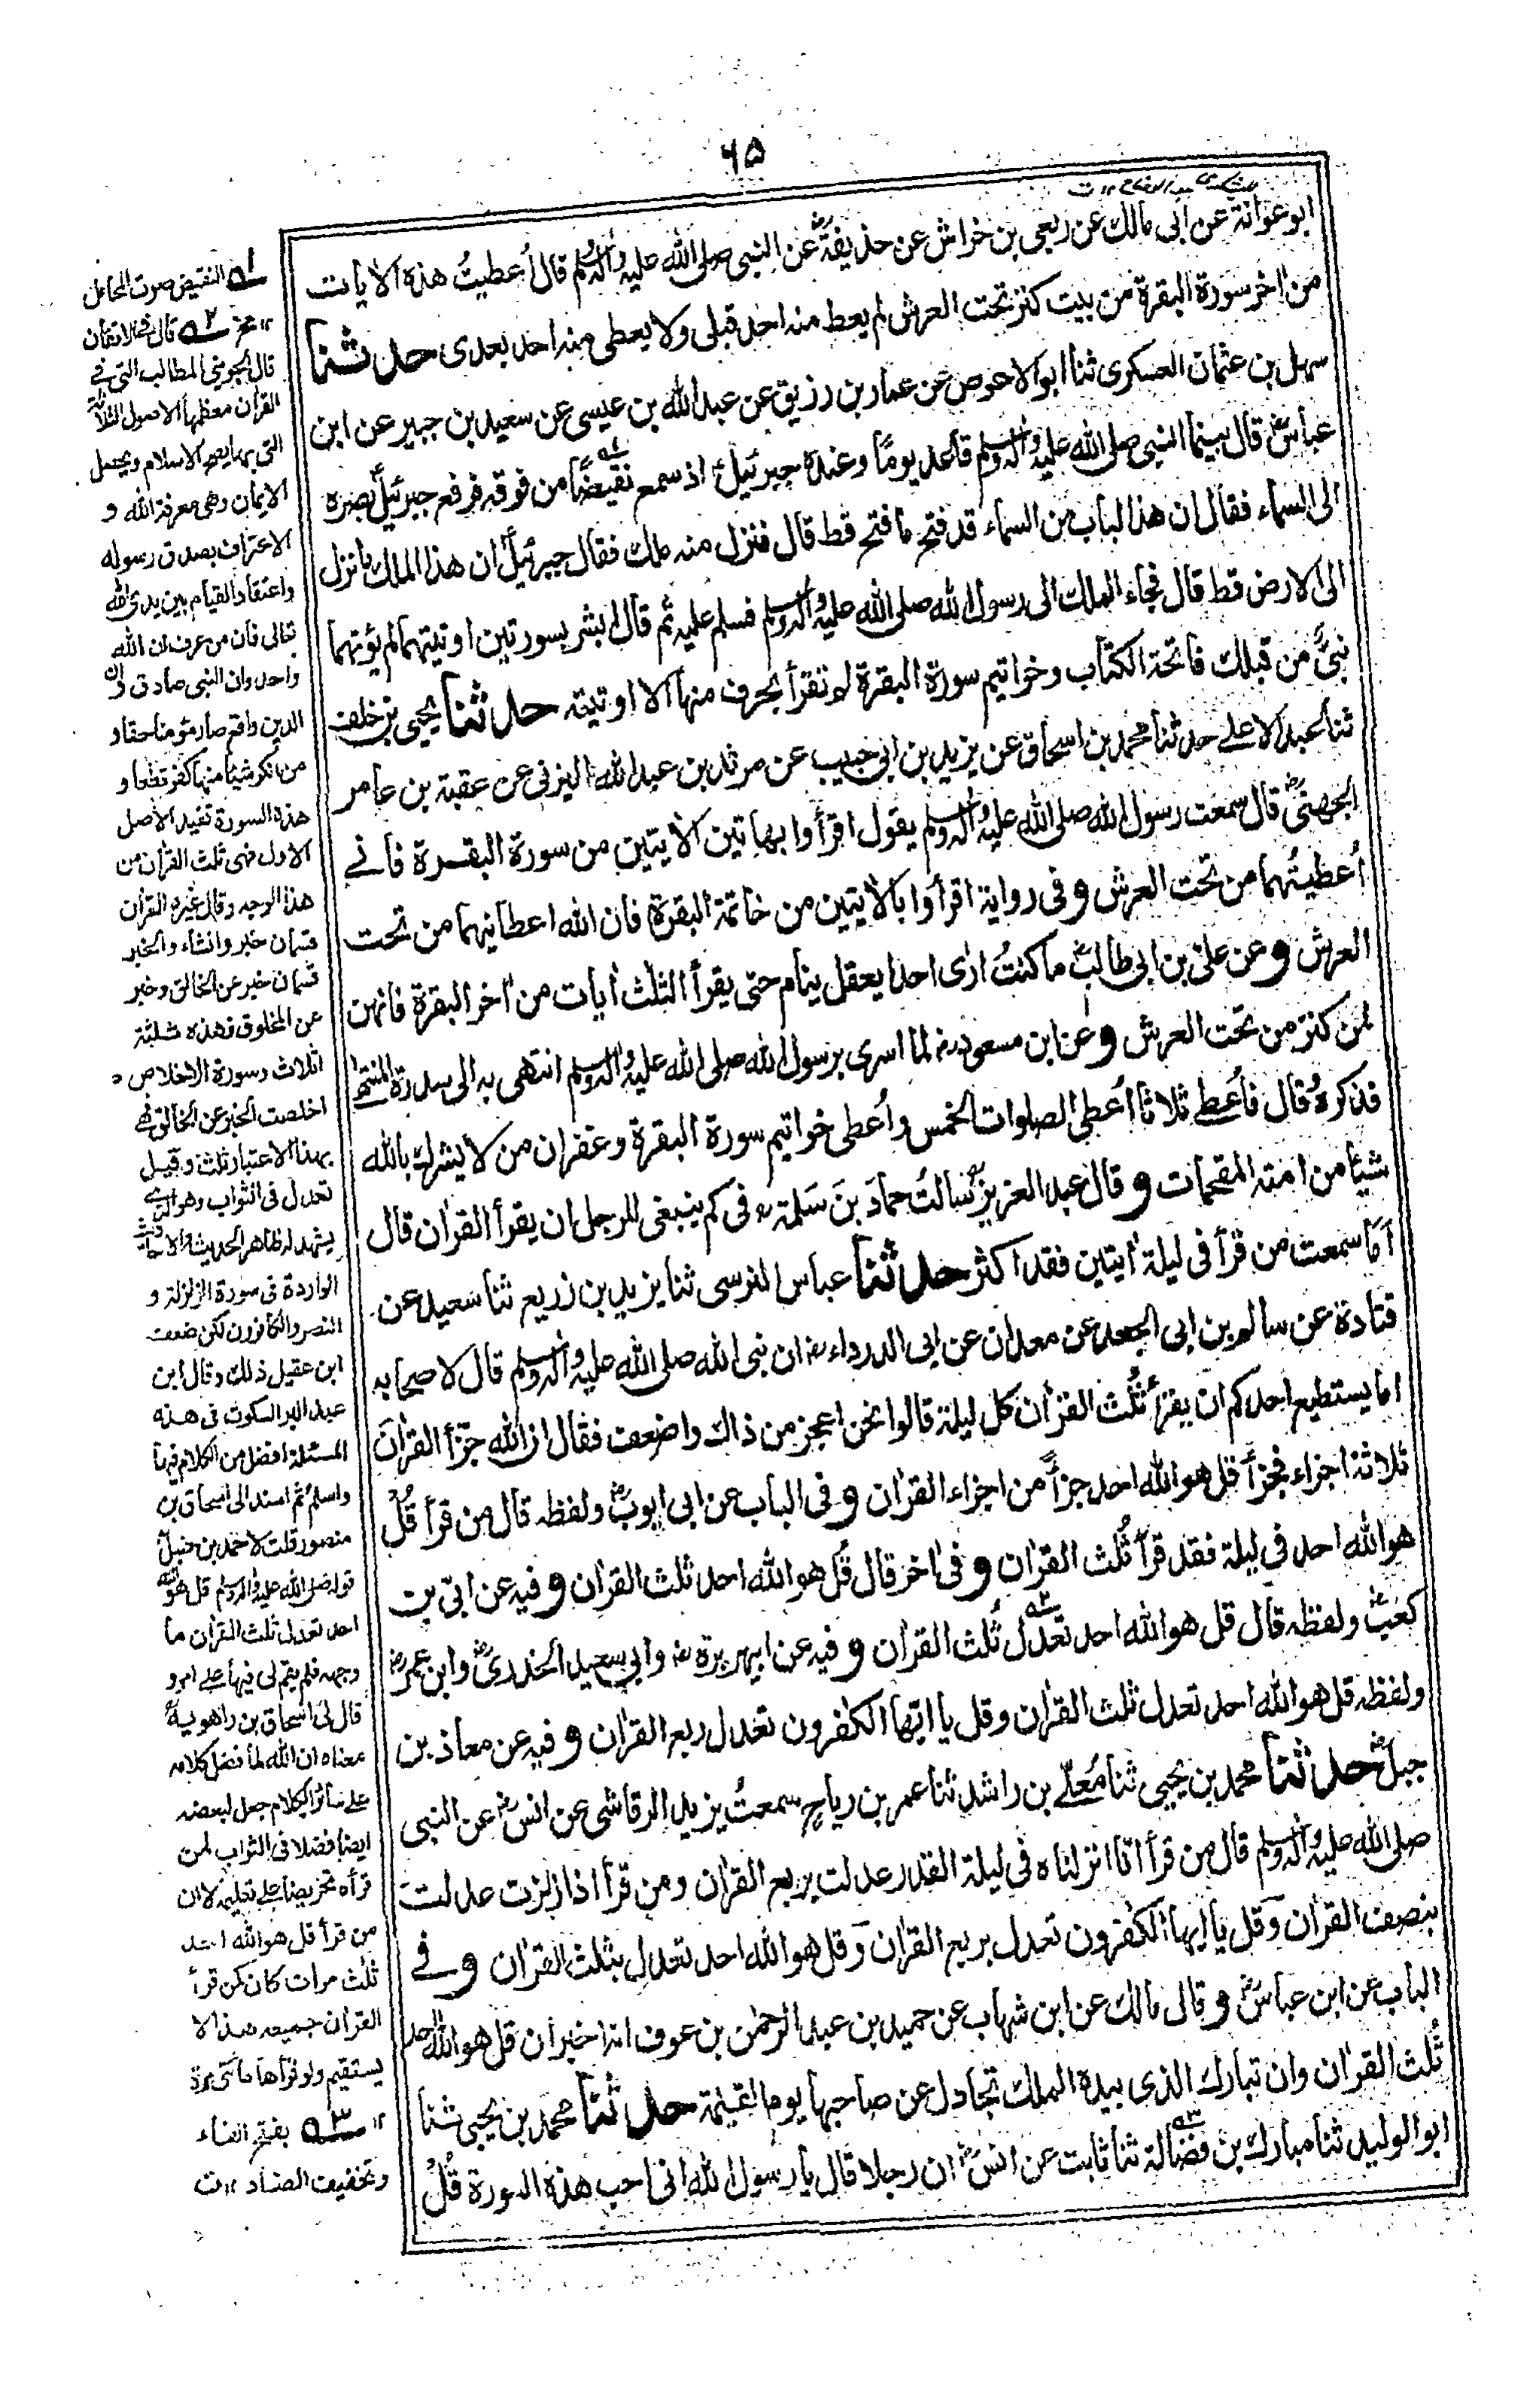 ٦٥
ابو عوانة عن ابى مالك عن ربعى بن خراش عن حذيفةؓ عن النبى صلى الله عليه واٰله وسلم قال اُعطيتُ هذه الاٰيات
من اٰخر سورة البقرة من بيت كنز تحت العرش لم يعط منه احد قبلى ولا يعطى منه احد بعدى حدثنا
سهل بن عثمان العسكرى ثنا ابو الاحوص عن عمار بن رزيق عن عبد الله بن عيسى عن سعيد بن جبير عن ابن
عباسؓ قال بينما النبى صلى الله عليه واٰله وسلم قاعد يومًا وعنده جبرئيلؑ اذ سمع نقيضًا من فوقه فرفع جبرئيلؑ بصره
الى السماء فقال ان هذا لباب من السماء قد فتح ما فتح قط قال فنزل منه ملك فقال جبرئيلؑ ان هذا الملك ما نزل
الى الارض قط قال فجاء الملك الى رسول الله صلى الله عليه واٰله وسلم فسلم عليه ثم قال ابشر بسورتين اوتيتهما لم يؤتهما
نبىٌّ من قبلك فاتحة الكتاب وخواتيم سورة البقرة لم تقرأ بحرف منها الا اوتيته حدثنا يحيى بن خلف
ثنا عبد الاعلى حدثنا محمد بن اسحاق عن يزيد بن ابى حبيب عن مرثد بن عبد الله اليزنى عن عقبة بن عامر
الجهنىؓ قال سمعت رسول الله صلى الله عليه واٰله وسلم يقول اقرأوا بهاتين الاٰيتين من سورة البقرة فانى
اُعطيتُهما من تحت العرش و فى رواية اقرأوا بالاٰيتين من خاتمة البقرة فان الله اعطانيهما من تحت
العرش و عن علىّ بن ابى طالبؓ ما كنتُ ارى احدا يعقل ينام حتى يقرأ الثلث اٰيات من اٰخر البقرة فانهن
لمن كنز من تحت العرش و عن ابن مسعود رضـ لما اسرى برسول الله صلى الله عليه واٰله وسلم انتهى به الى سدرة المنتهى
فذكره قال فأُعطى ثلاثا اُعطى الصلوات الخمس واُعطى خواتيم سورة البقرة وغفران من لا يشرك بالله
شيئا من امته المقحمات و قال عبد العزيزؒ سالتُ حمادَ بنَ سَلمةؒ فى كم ينبغى للرجل ان يقرأ القراٰن قال
اَمَا سمعت من قرأ فى ليلة اٰيتين فقد اكثر حدثنا عباس النرسى ثنا يزيد بن زريع ثنا سعيد عن
قتادة عن سالم بن ابى الجعد عن معدان عن ابى الدرداء رضـ ان نبى الله صلى الله عليه واٰله وسلم قال لاصحابه
اما يستطيع احدكم ان يقرأ ثُلُث القراٰن كل ليلة قالوا نحن اعجز من ذاك واضعف فقال ان الله جزّأ القراٰنَ
ثلاثة اجزاء فجزأ قل هو الله احد جزأً من اجزاء القراٰن و فى الباب عن ابى ايوبؓ ولفظه قال من قرأ قُلْ
هو الله احد فى ليلة فقد قرأ ثُلُث القراٰن و فى اٰخر قال قُل هو الله احد ثلث القراٰن و فيه عن ابىّ بن
كعبؓ ولفظه قال قل هو الله احد تعدل ثُلث القراٰن و فيه عن ابى هريرة رضـ وابى سعيد الخدرىؓ وابن عمرؓ
ولفظه قل هو الله احد تعدل ثلث القراٰن وقل يا ايّها الكٰفرون تعدل ربع القراٰن و فيه عن معاذ بن
جبلؓ حدثنا محمد بن يحيى ثنا مُعلّى بن راشد ثنا عمر بن رياح سمعتُ يزيد الرقاشى عن انسؓ عن النبى
صلى الله عليه واٰله وسلم قال من قرأ انّا انزلناه فى ليلة القدر عدلت بربع القراٰن ومن قرأ اذا زلزلت عدلت
بنصف القراٰن وقل يا ايها الكٰفرون تعدل بربع القراٰن وقل هو الله احد تعدل بثلث القراٰن و فى
الباب عن ابن عباسؓ و قال مالك عن ابن شهاب عن حميد بن عبد الرحمٰن بن عوف انه اخبر ان قل هو الله احد
ثُلث القراٰن وان تبارك الذى بيده الملك تجادل عن صاحبها يوم القيٰمة حدثنا محمد بن يحيى ثنا
ابو الوليد ثنا مبارك بن فضالة ثنا ثابت عن انسؓ ان رجلا قال يا رسول الله انى احب هذه السورة قُلْ
١ النقيض صوت المحامل
١٢ ٢ قال فى الاتقان
قال الجوينى المطالب التى فى
القراٰن معظمها الاصول الثلاثة
التى بها يصح الاسلام ويحصل
الايمان وهى معرفة الله و
الاعتراف بصدق رسوله
واعتقاد القيام بين يدى الله
تعالى فان من عرف ان الله
واحد وان النبى صادق وان
الدين واقع صار مؤمنا حقا و
من انكر شيئا منها كفر قطعا و
هذه السورة تفيد الاصل
الاول فهى ثلث القراٰن من
هذا الوجه وقال غيره القراٰن
قسمان خبر وانشاء والخبر
قسمان خبر عن الخالق وخبر
عن المخلوق فهذه ثلثة
اثلاث وسورة الاخلاص
اخلصت الخبر عن الخالق فهى
بهذا الاعتبار ثلث وقيل
تعدل فى الثواب وهو الذى
يشهد له ظاهر الحديث والاحاديث
الواردة فى سورة الزلزلة و
النصر والكافرون لكن ضعف
ابن عقيل ذلك وقال ابن
عبد البر السكوت فى هذه
المسئلة افضل من الكلام فيها
واسلم ثم اسند الى اسحاق بن
منصور قلت لاحمد بن حنبل
قوله صلى الله عليه واٰله وسلم قل هو الله
احد تعدل ثلث القراٰن ما
وجهه فلم يقم لى فيها على امر و
قال لى اسحاق بن راهويه
معناه ان الله لما فضل كلامه
على سائر الكلام جعل لبعضه
ايضا فضلا فى الثواب لمن
قرأه تحريضا على تعليمه لا ان
من قرأ قل هو الله احد
ثلث مرات كان كمن قرأ
القراٰن جميعه هذا لا
يستقيم ولو قرأها مائتى مرة
١٢ ٣ بفتح الفاء
وتخفيف الضاد ١٢ت